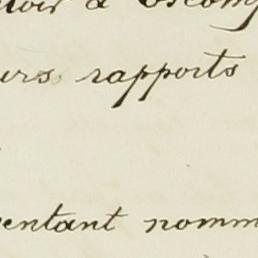 toir d'Escomp
urs rapports
entant nomm